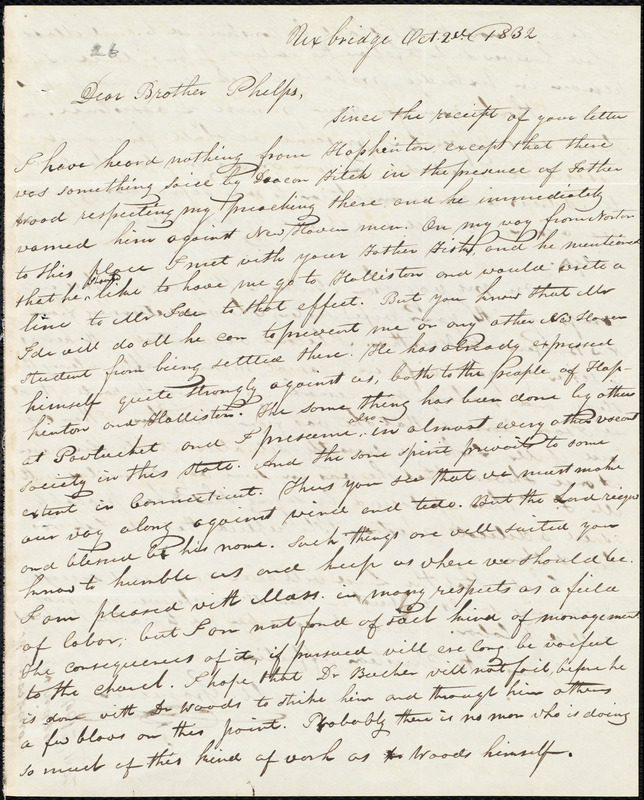 26
Uxbridge Oct. 2d. 1832
Dear Brother Phelps,
Since the receipt of your letter
I have heard nothing from Hopkinton except that there
was something said by Deacon Fitch in the presence of Father
Wood respecting my preaching there and he immediately
warned him against New Haven men. On my way from Norton
to this place I met with your Father Fisk, and he mentioned
that he should like to have me go to Holliston and would write a
line to Mr Ide to that effect. But you know that Mr
Ide will do all he can to prevent me or any other New Haven
student from being settled there. He has already expressed
himself quite strongly against us, both to the people of Hop-
kinton and Holliston. The same thing has been done by others
at Pawtucket and I presume also in almost every other vacant
society in this state. And the same spirit prevails to some
extent in Connecticut. Thus you see that we must make
our way along against wind and tide. But the Lord reigns
and blessed be his name. Such things are well suited you
know to humble us and keep us where we should be.
I am pleased with Mass. in many respects as a field
of labor; but I am not fond of such kind of management
The consequences of it, if pursued will ere long be woeful
to the church. I hope that Dr Beecher will not fail, before he
is done with Dr Woods to strike him and through him others
a few blows on this point. Probably there is no man who is doing
so much of this kind of work as Dr Woods himself.